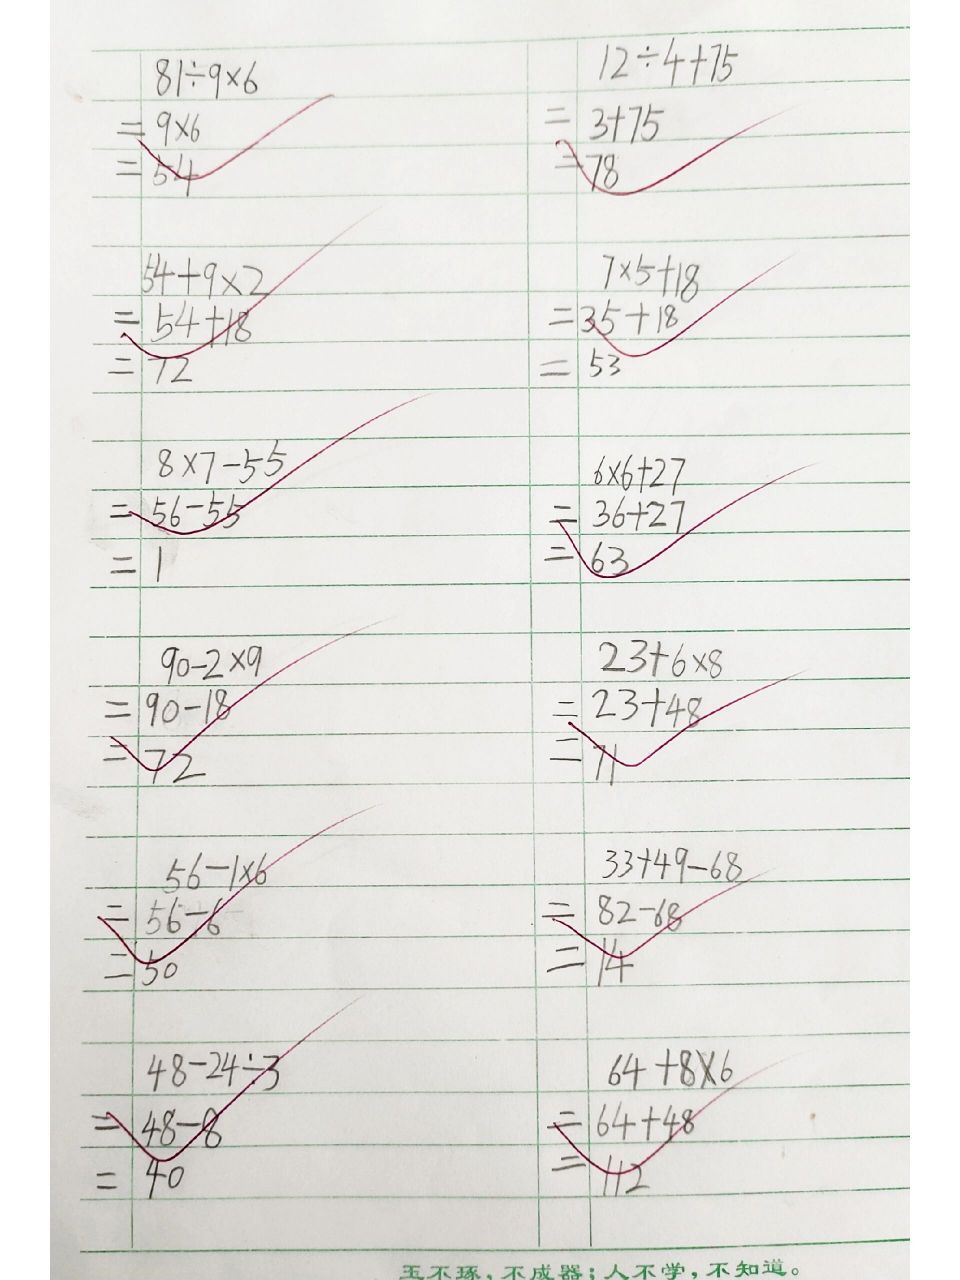 81÷9×6
=9×6
=54
12÷4+75
=3+75
=78
54+9×2
=54+18
=72
7×5+18
=35+18
=53
8×7-55
=56-55
=1
6×6+27
=36+27
=63
90-2×9
=90-18
=72
23+6×8
=23+48
=71
56-1×6
=56-6
=50
33+49-68
=82-68
=14
48-24÷3
=48-8
=40
64+8×6
=64+48
=112
玉不琢，不成器；人不学，不知道。